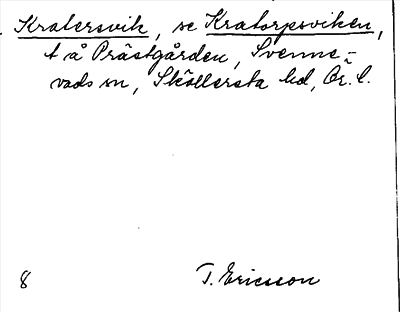 Kratersvik, se Kratorpsviken,
t å Prästgården, Svenne-
vads sn, Sköllersta hd, Ör. l.
8 T. Ericsson